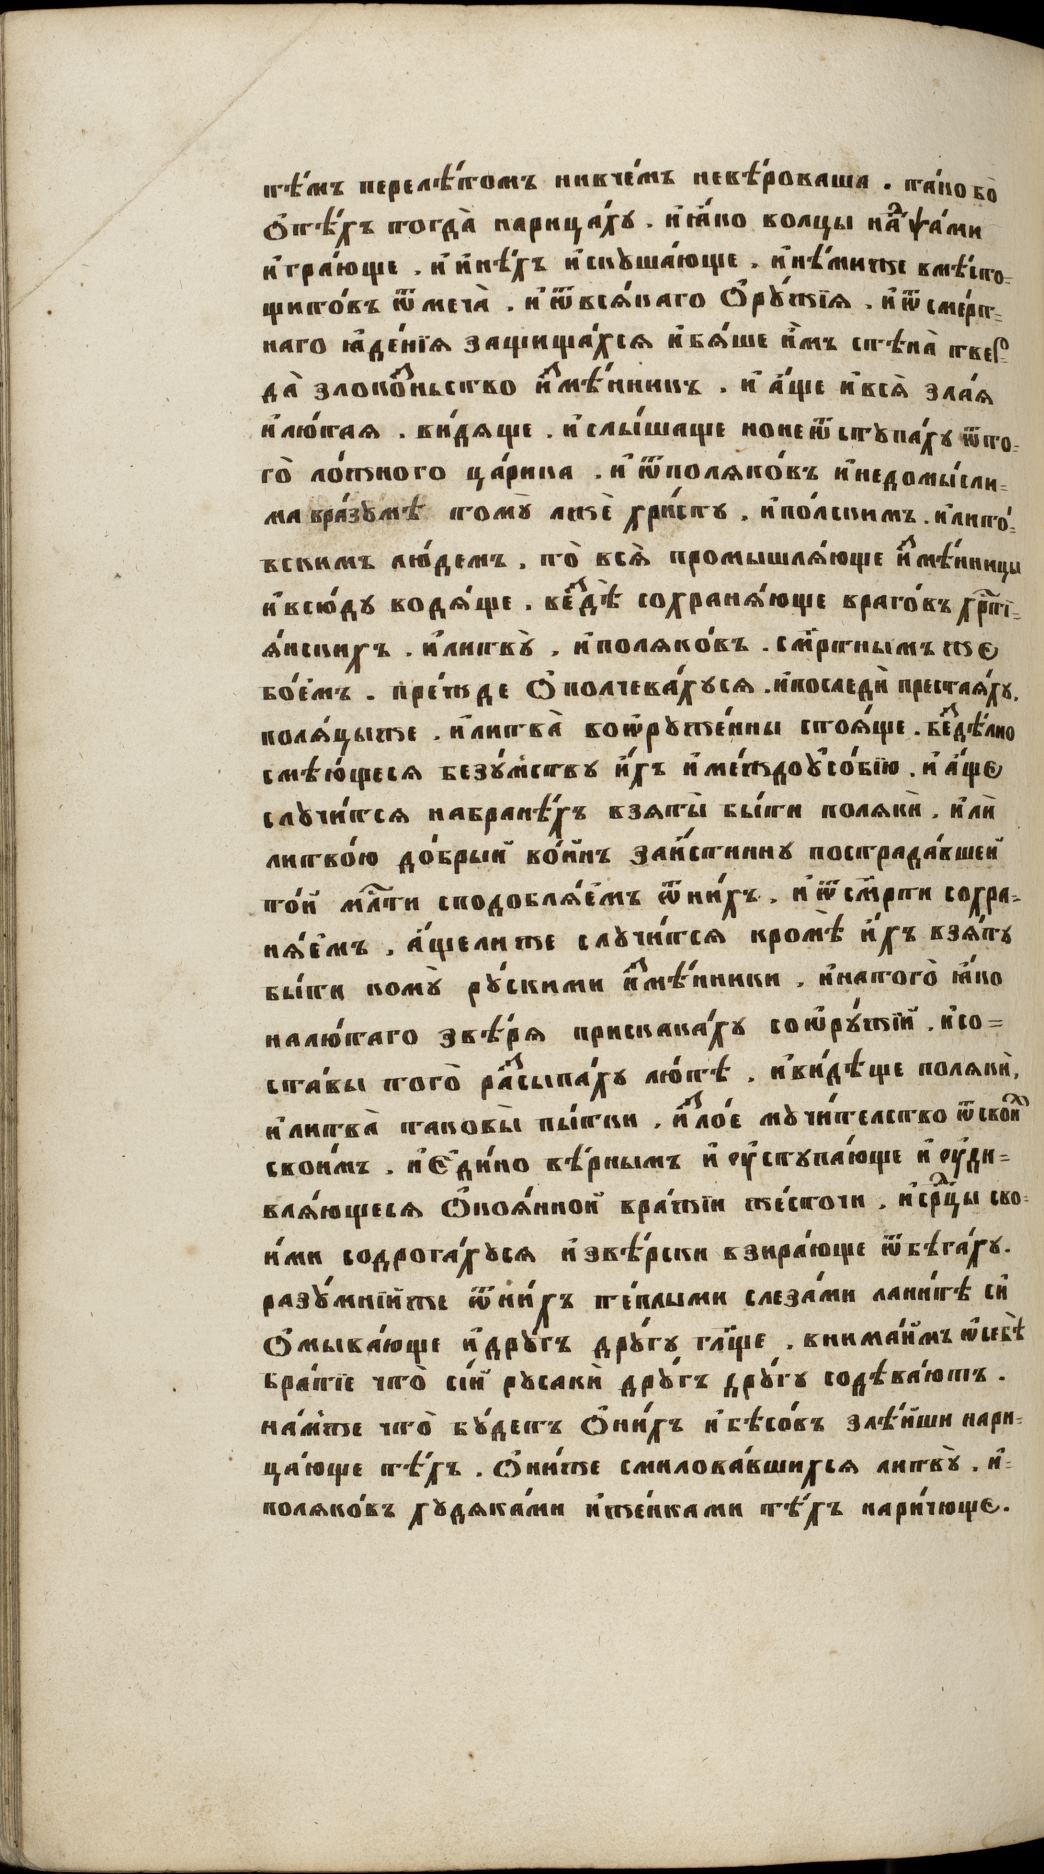 тѣ́мъ перелѣ́томъ нивче́мъ невѣ́роваша . та́ко бо̀
ѻ҆тѣ́хъ тогда̀ нарица́хꙋ . и҆ ꙗ҆́ко волцы наⷣ ѱа́ми
и҆гра́юще . и҆ и҆нѣ́хъ и҆скꙋша́юще . и҆нѣ́миже вмѣ́сто-
щито́въ ѿ меча̀ . и҆ ѿ вся́каго ѻ҆рꙋ́жїя . и҆ ѿ сме́рт=
наго ꙗ҆де́нїя защища́хся и҆ бя́ше и҆̀мъ стѣна̀ тверⷣ
да̀ злоко́ⷥньство и҆ⷥмѣ́нникъ . и҆ а҆́ще и҆ вся̀ зла́я
и҆ лю́тая . ви́дяще . и҆ слы́шаще но не ѿстꙋпа́хꙋ ѿ то-
го̀ ло́жного ца́рика . и҆ ѿ поляко́въ и҆ недомы́сли-
ма вра́зꙋмѣ томꙋ̀ лжѐ хри́стꙋ . и҆ по́лскимъ . и҆ лито́-
вскимъ лю́демъ . то̀ вся̀ промышля́юще и҆ⷥмѣ́нницы
и҆ всю́дꙋ водя́ще . веⷥдѣ̀ сохраня́юще враго́въ хрⷭ҇тї-
я́нскихъ . и҆ литвꙋ̀ . и҆ поляко́въ . см҃ртнымъ же
бо́емъ . пре́жде ѻ҆полчева́хꙋся . и҆ последѝ преста́яхꙋ .
поля́цыже . и҆ литва̀ воѡ҆рꙋже́нны стоя́ще . беⷥдѣ́лно
смѣю́щеся безꙋ́мствꙋ и҆́хъ и҆ ме́ждоꙋ҆со́бїю . и҆ а҆́ще
слꙋчи́тся на бранѣ́хъ взяты̀ бы́ти полякѝ . и҆лѝ
литво́ю до́брый во́инъ за и҆́стиннꙋ пострада́вшей
то́й мⷭ҇лти сподобля́емъ ѿ ни́хъ . и҆ ѿ см҃рти сохра-
ня́емъ . а҆́щелиже слꙋчи́тся кромѣ̀ и҆́хъ взя́тꙋ
бы́ти комꙋ̀ рꙋ́скими и҆ⷥмѣ́нники . и҆ на того̀ ꙗ҆́ко
на лю́таго звѣ́ря прискака́хꙋ со ѡ҆рꙋ́жїй . и҆ со=
ста́вы того̀ раⷥсыпа́хꙋ лю́тѣ . и҆ ви́дѣще полякѝ ,
и҆ литва̀ таковы̀ пы́тки . и҆ ⷥло́е мꙋчи́телство ѿ свои́ⷯ
свои́мъ . и҆ є҆ди́но вѣ́рнымъ и҆ оу҆стꙋпа́юще и҆ оу҆ди=
вля́ющеся ѻ҆коя́нной вра́жїи же́сточи . и҆ срⷣцы сво-
и́ми содрога́хꙋся и҆ звѣ́рски взира́юще ѿбѣга́хꙋ .
разꙋ́мнїйже ѿ ни́хъ те́плыми слеза́ми лани́тѣ си̑
ѻ҆мыва́юще и҆ дрꙋ́гъ дрꙋ́гꙋ гл҃ще . внима́имъ ѡ҆себѣ̀
бра́тїе что̀ сі́и рꙋсакѝ дрꙋ́гъ дрꙋ́гꙋ содѣва́ютъ .
на́мже что̀ бꙋ́детъ ѻ҆ни́хъ и҆ бѣсо́въ злѣ́йши нари-
ца́юще тѣ́хъ . ѻ҆ни́же смилова́вшихся литвꙋ̀ . и҆-
поляко́въ хꙋдяка́ми и҆ же́нками тѣ́хъ нари́чюще .